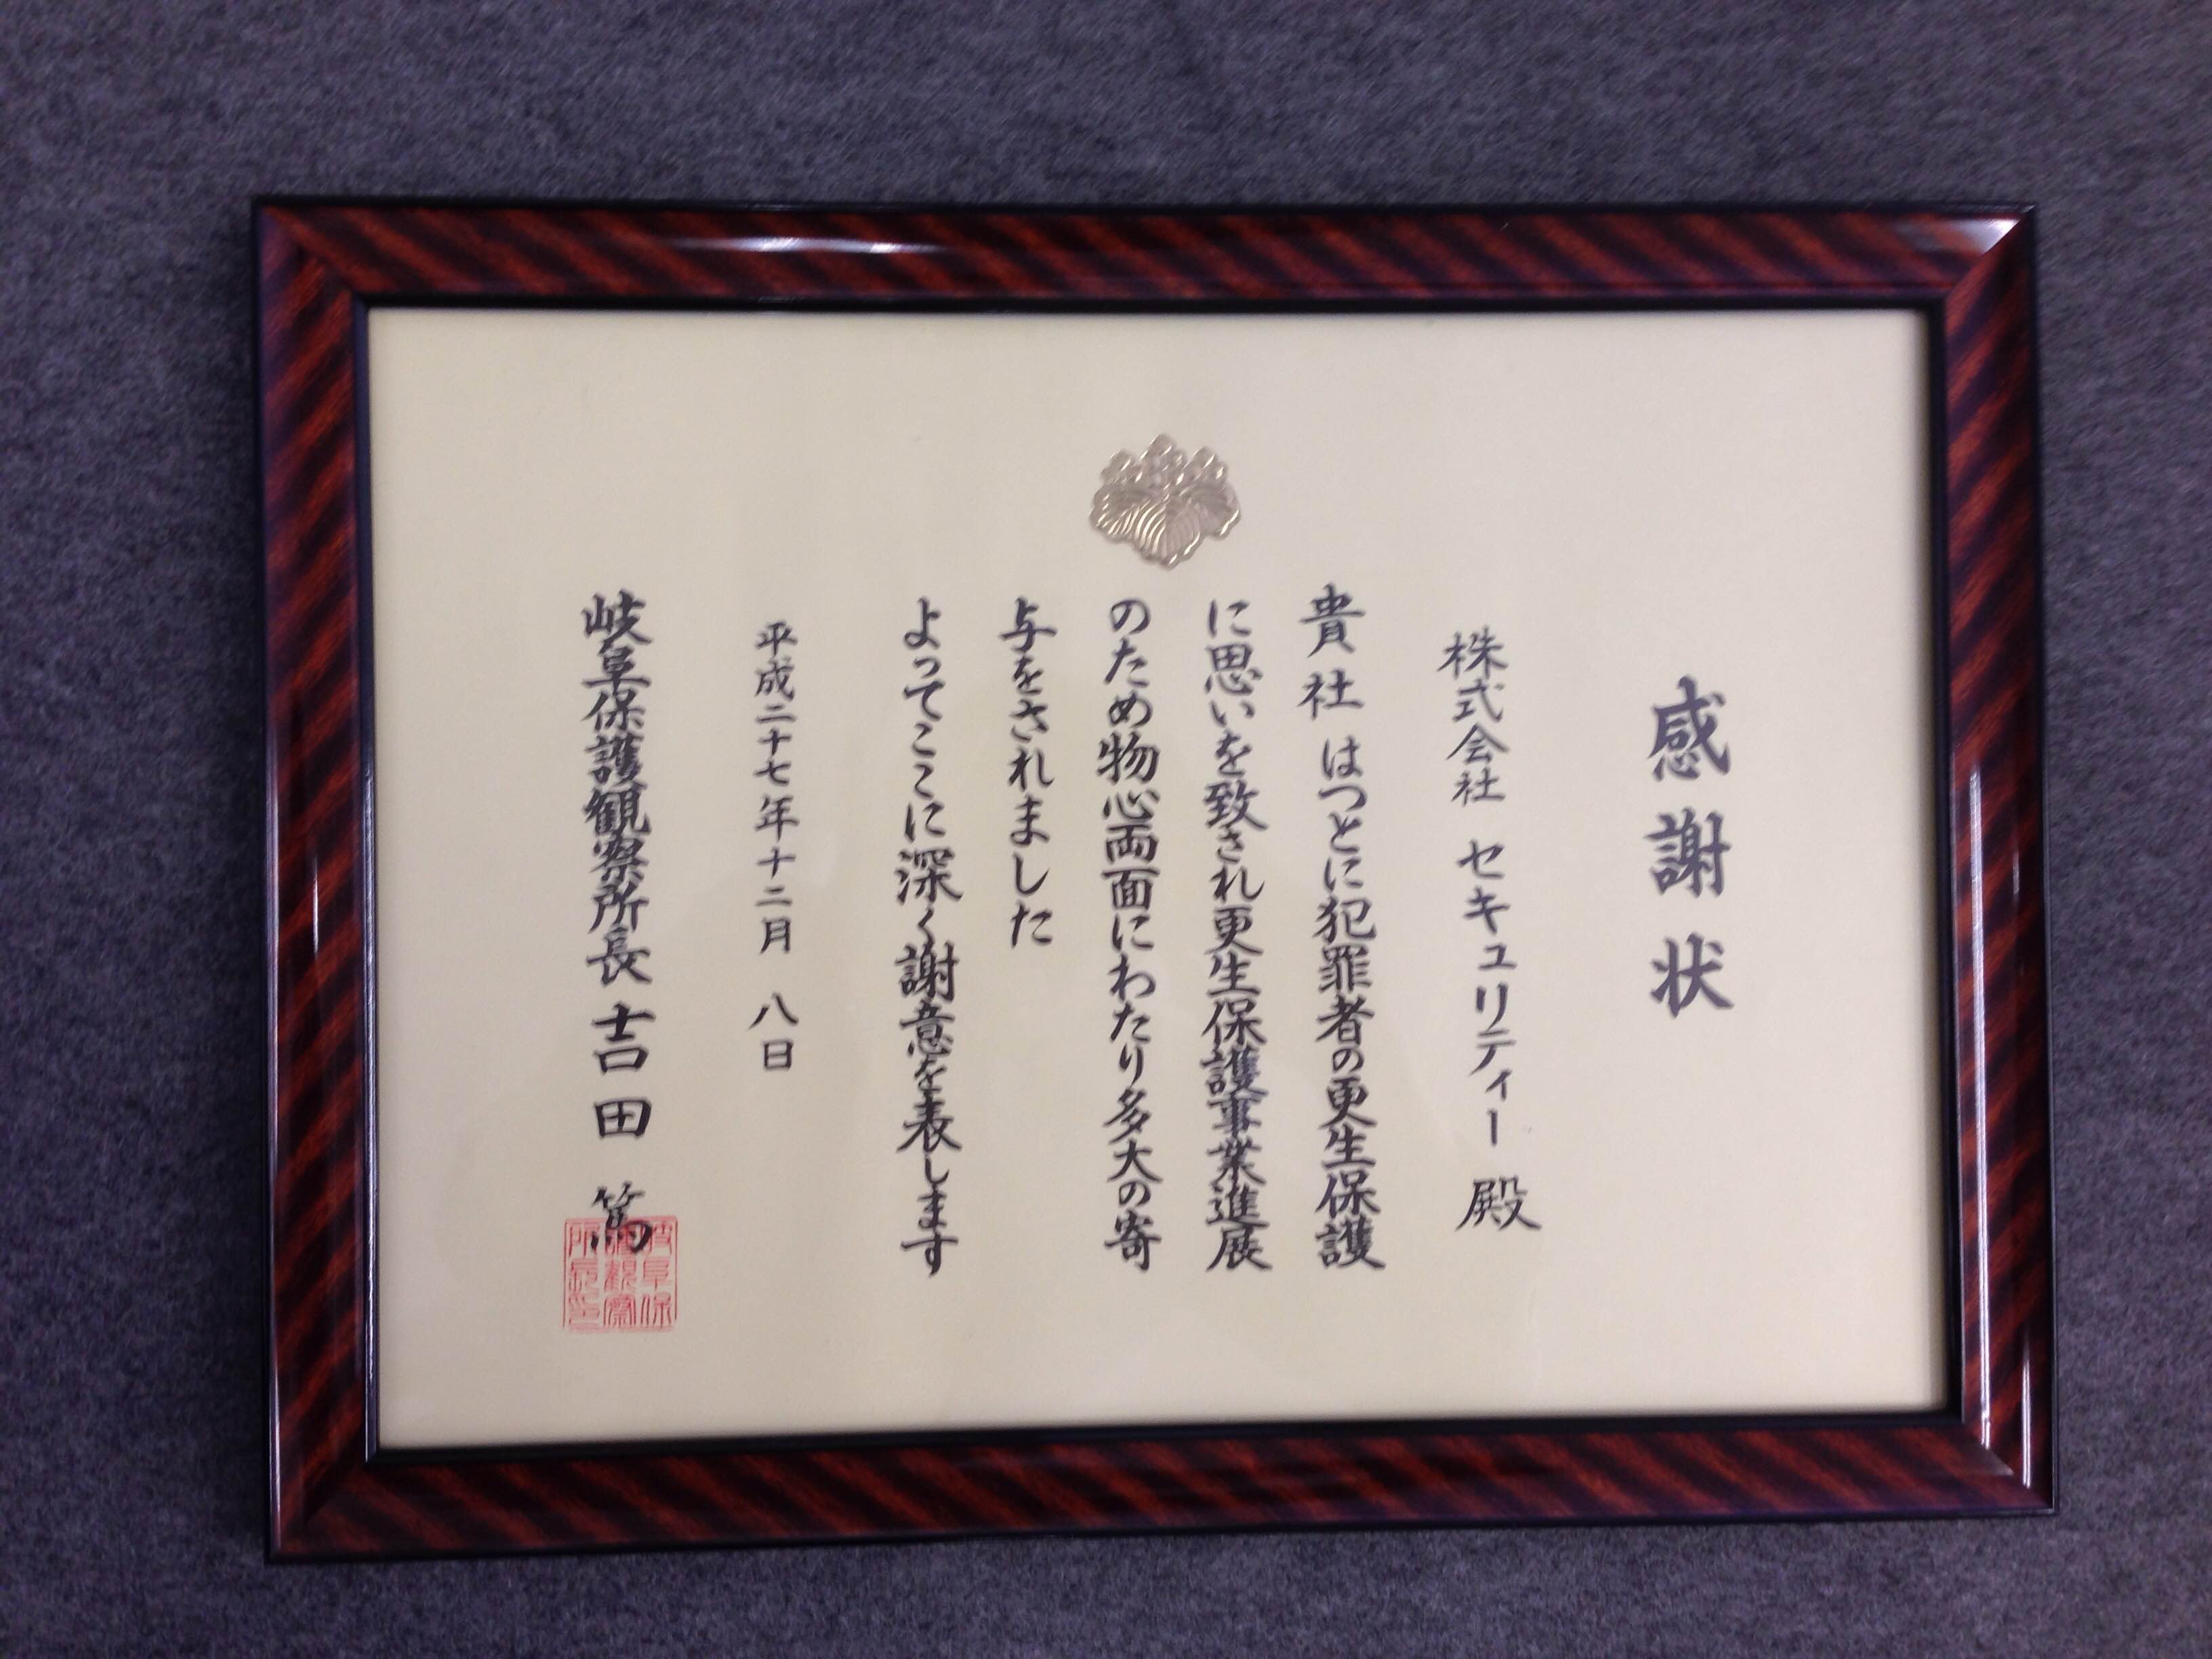 感謝状
株式会社 セキュリティー 殿
貴社 はつとに犯罪者の更生保護
に思いを致され更生保護事業進展
のため物心両面にわたり多大の寄
与をされました
よってここに深く謝意を表します
平成二十七年十二月 八日
岐阜保護観察所長 吉田 篤
岐阜保
護観察
所長印